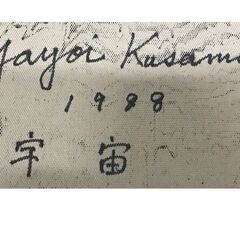 Yayoi Kusama
1988
宇宙